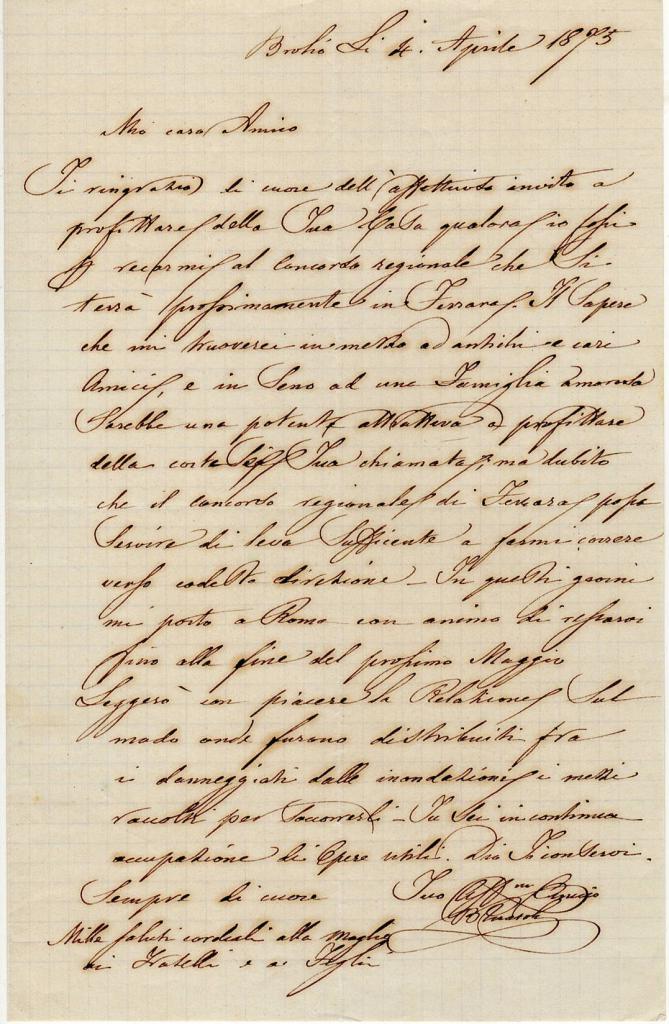 Brolio Li 4. Aprile 1875
Mio caro Amico
Ti ringrazio di cuore dell'affettuoso invito a
profittare della Tua Casa qualora io fossi
p recarmi al Concorso regionale che Si
terrà prossimamente in Ferrara. Il Sapere
che mi truoverei in mezzo ad antichi e cari
Amici, e in Seno ad una Famiglia amorosa
Sarebbe una potente attrattiva a profittare
della cortese Tua chiamata, ma dubito
che il Concorso regionale di Ferrara possa
Servire di leva Sufficente a farmi correre
verso codesta direzione - In questi giorni
mi porto a Roma con animo di restarvi
fino alla fine del prossimo Maggio
Leggerò con piacere la Relazione Sul
modo onde furono distribuiti fra
i danneggiati dalle inondazioni i mezzi
raccolti per Soccorrerli - Tu Sei in continua
occupazione di Opere utili. Dio Ti conservi.
Sempre di cuore Tuo Aff.mo Amico
B Ricasoli
Mille saluti cordiali alla moglie
ai Fratelli e ai Figli